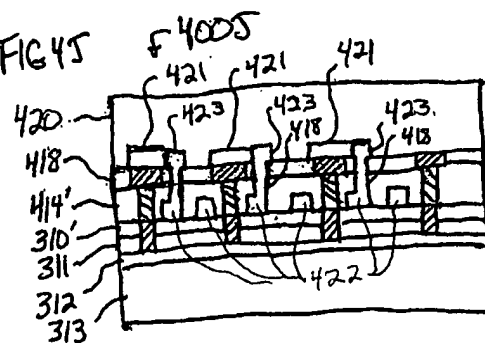 FIG 4J
400J
421
421
421
420
423
423
423
418
418
418
414'
310'
311
312
313
422